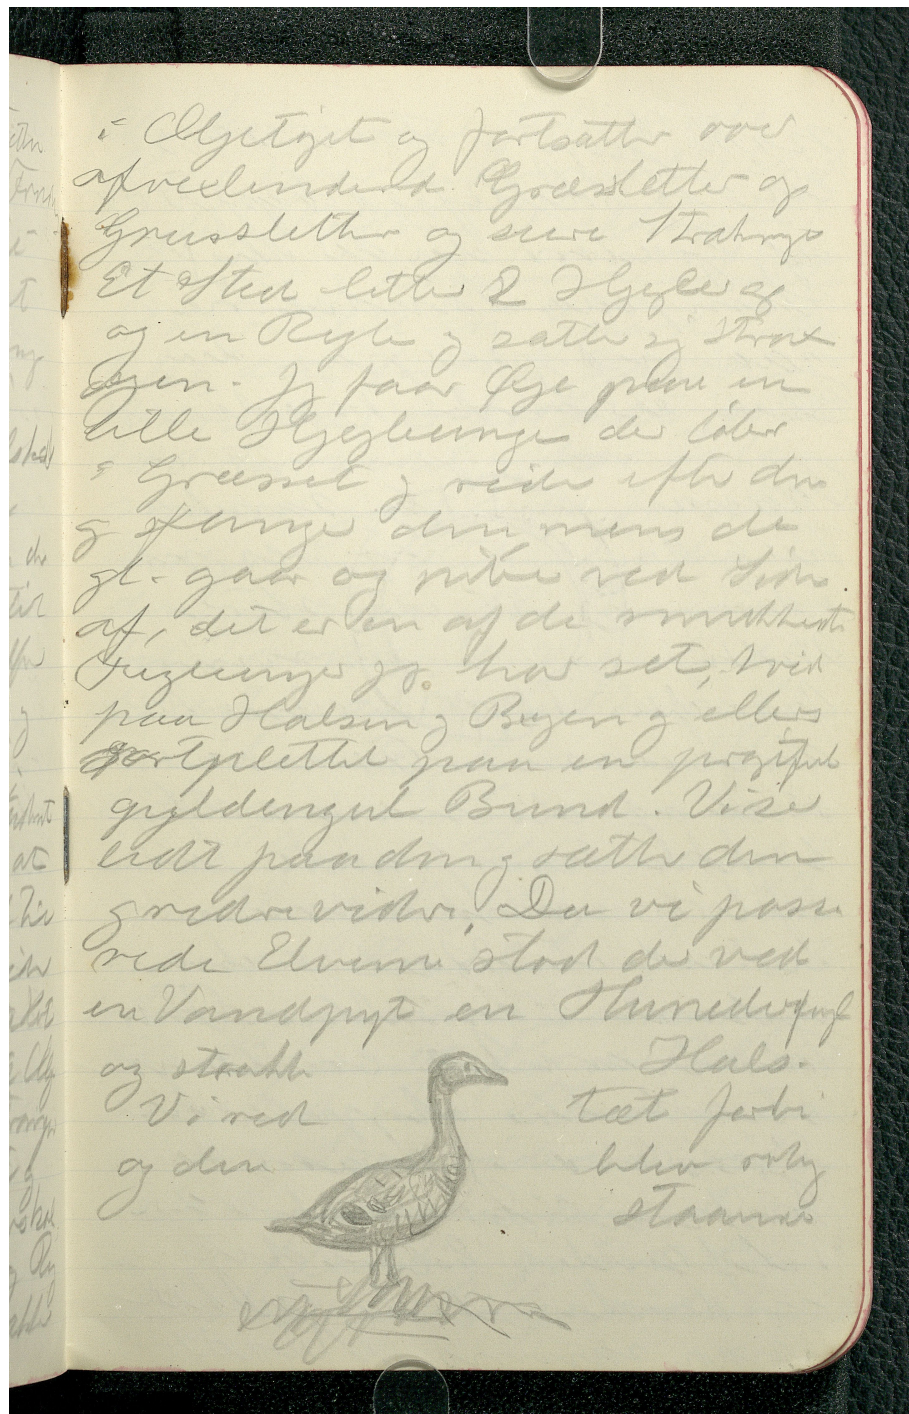 i Oljetøjet og fortsætter over
afvexlende Græssletter og
Grussletter og sure Strækninger
Et Sted letter 2 Hjejler og
og en Ryle og sætter sig strax
igen. Jeg faar Øje paa en
lille Hjejleunge der løber
i Græsset og rider efter den
og fanger den, mens de
gl. gaar og piber ved Siden
af, det er en af de smukkeste
Fugleunger jeg har set, hvid
paa Halsen og Brystet og ellers
sortplettet paa en prægtfuld
gyldengul Bund. Vi ser
lidt paa den og sætter den
og rider videre. Da vi passe-
rede Elvene stod der ved
en Vandpyt en Hunederfugl
og strakte Hals.
Vi red tæt forbi
og den blev rolig
staaende